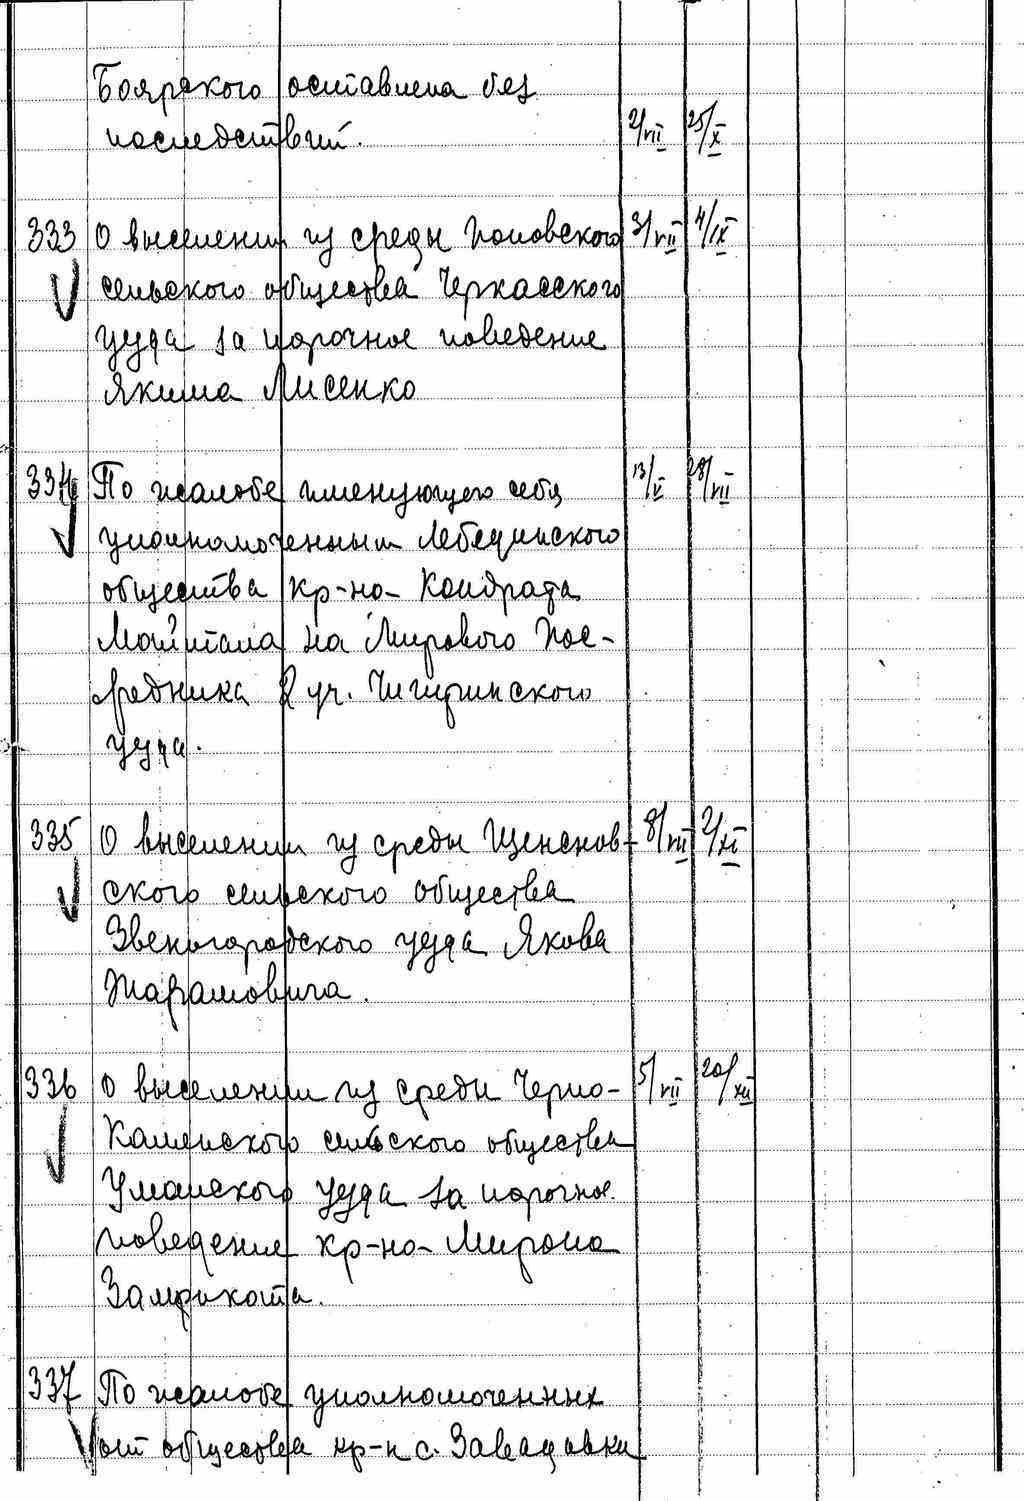 Боярского оставлена без
последствий. 2/VII 25/X
333 О выселении из среды Поповского 3/VII 4/IX
сельского общества Черкасского
уезда за порочное поведение
Якима Лисенко
334 По жалобе именующего себя 13/V 28/VII
уполномоченным Лебединского
общества кр-на Кондрата
на Мирового Пос-
редника 2 уч. Чигиринского
уезда.
335 О выселении из среды 8/VII 2/XI
ского сельского общества
Звенигородского уезда Якова
Тарамовича.
336 О выселении из среды Черно- 5/VII 20/XII
Каменского сельского общества
Уманского уезда за порочное
поведение кр-на Мирона
337 По жалобе уполномоченных
от общества кр-н с. Завадовки